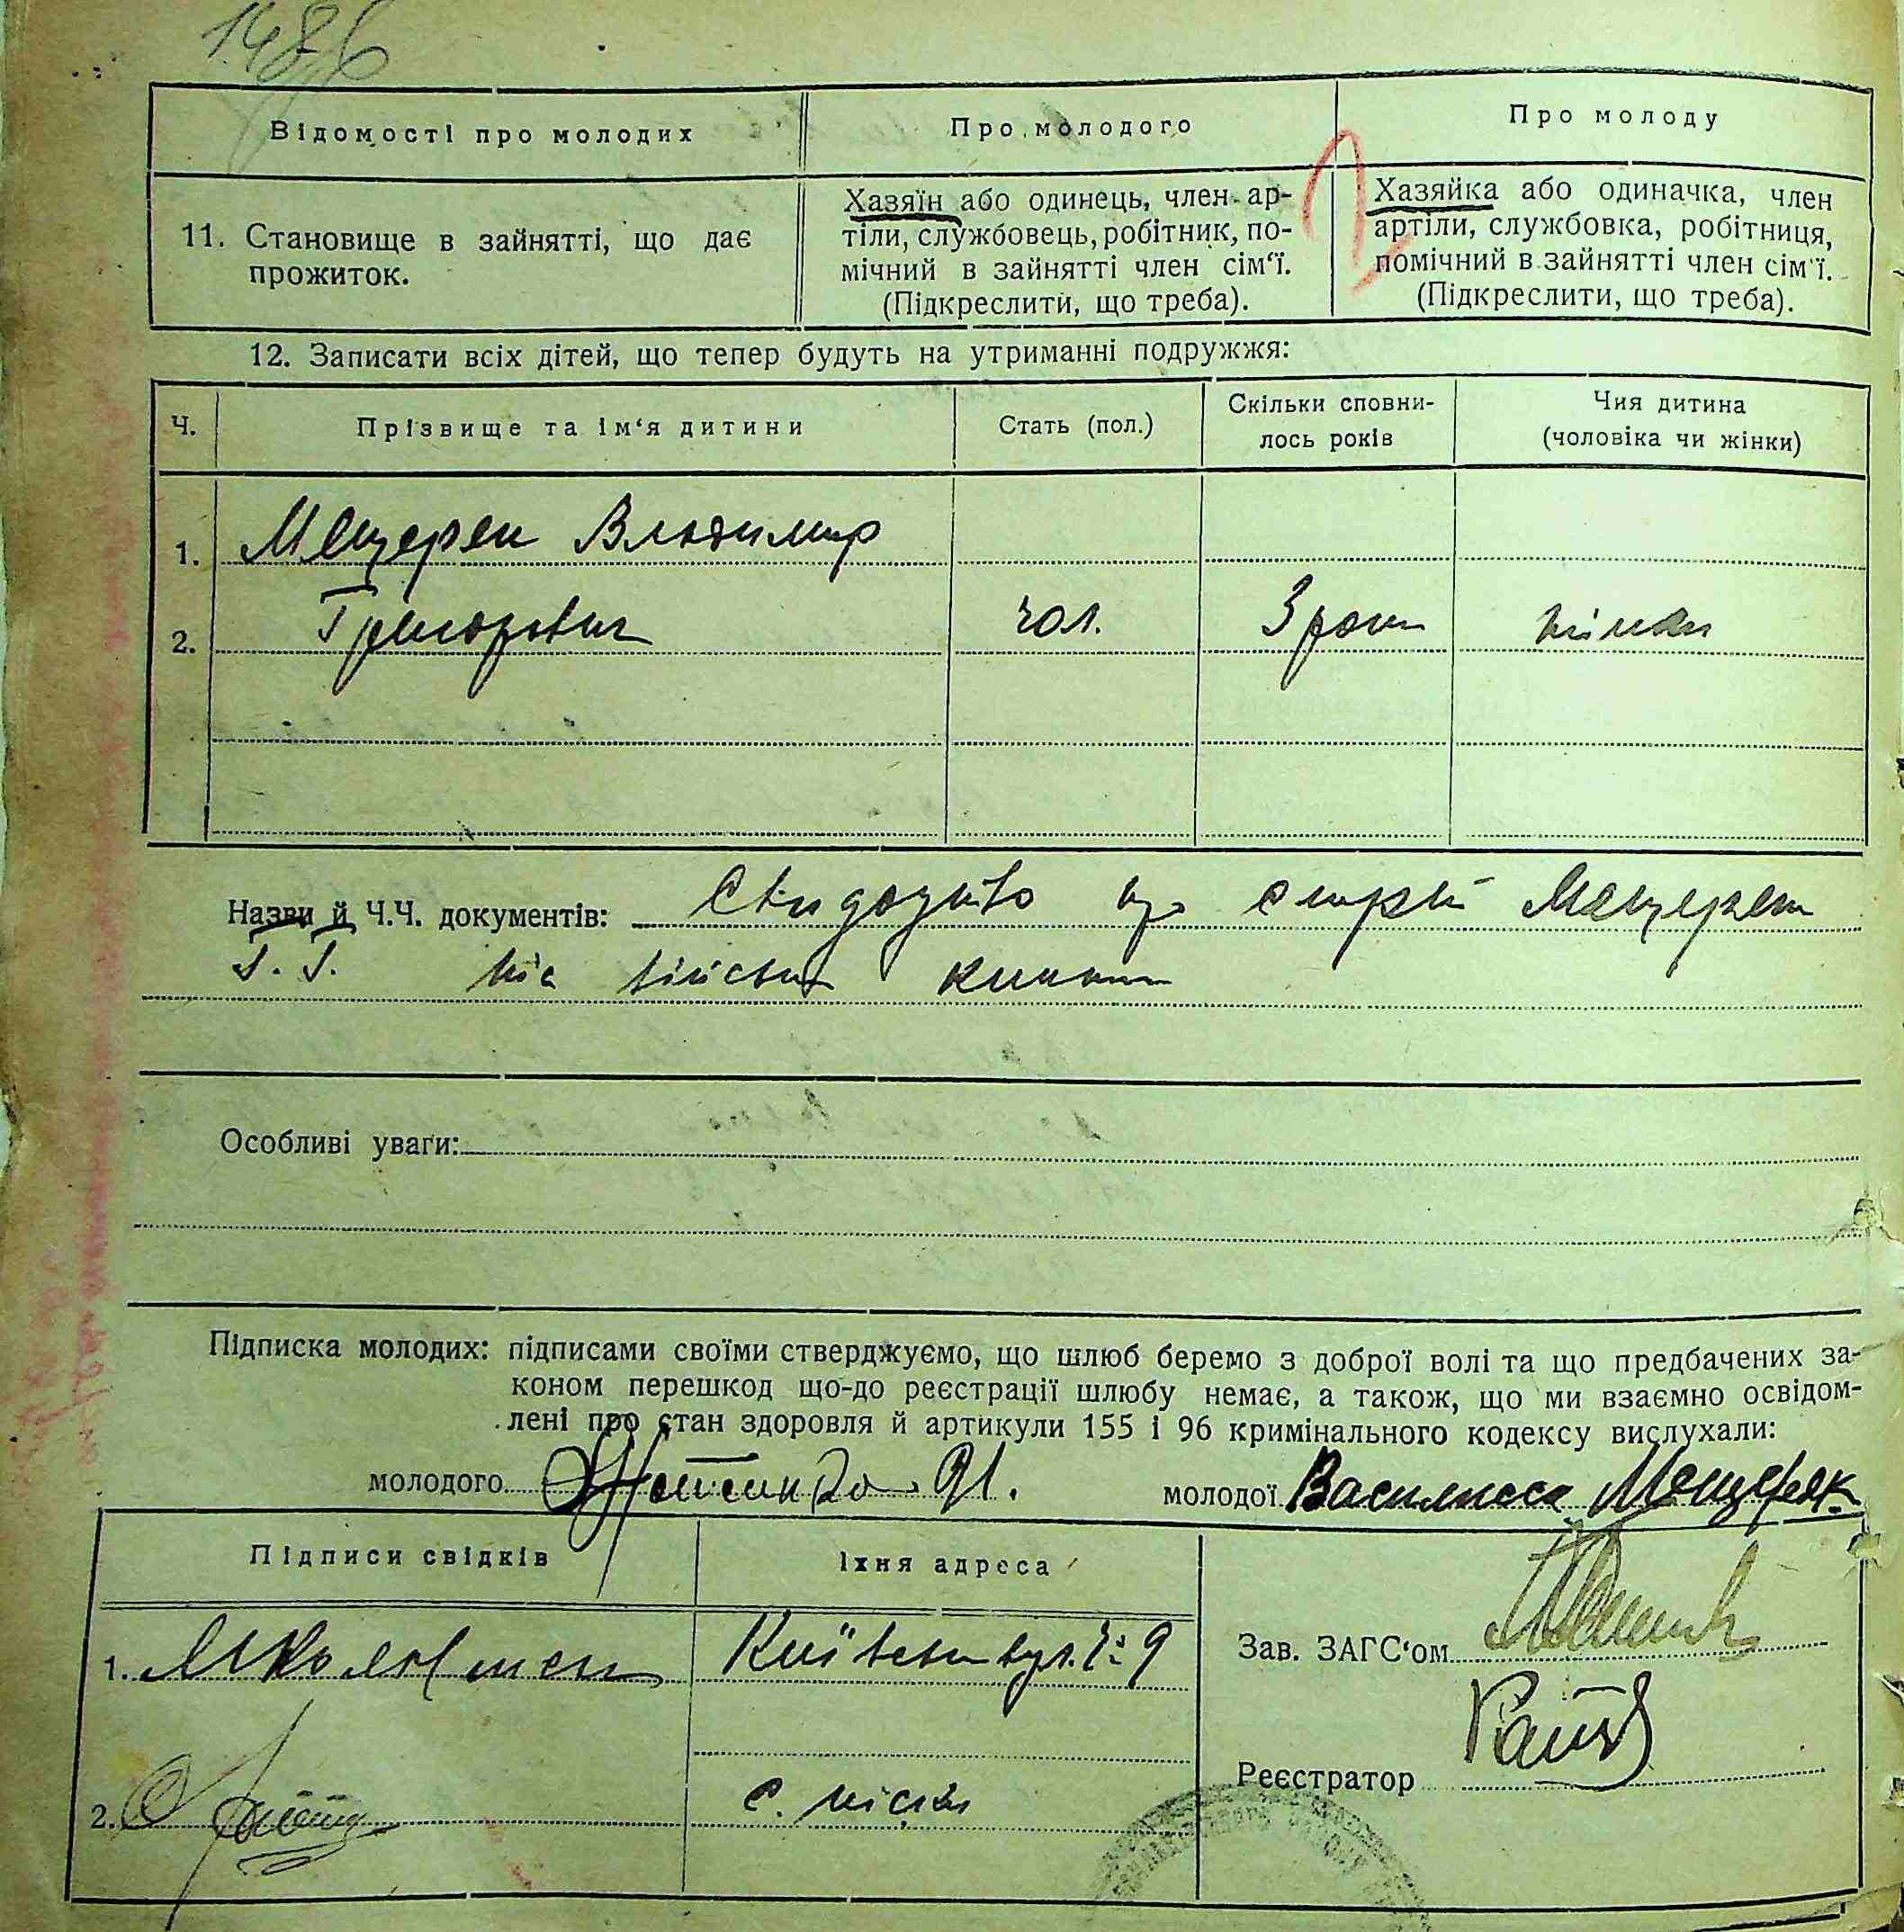 1486
Відомості про молодих
Про молодого
Про молоду
11. Становище в зайнятті, що дає
прожиток.
Хазяїн або одинець, член ар-
тіли, службовець, робітник, по-
мічний в зайнятті член сім'ї.
(Підкреслити, що треба).
Хазяйка або одиначка, член
артіли, службовка, робітниця,
помічний в зайнятті член сім'ї.
(Підкреслити, що треба).
12. Записати всіх дітей, що тепер будуть на утриманні подружжя:
Ч.
Прізвище та ім'я дитини
Стать (пол.)
Скільки сповни-
лось років
Чия дитина
(чоловіка чи жінки)
1. Мещеряк Владимир
2. Григорович чол. 3 роки жінки
Назви й Ч.Ч. документів: Свидоцтво про смерть Мещеряк
Г. Г. військ книжки
Особливі уваги:
Підписка молодих: підписами своїми стверджуємо, що шлюб беремо з доброї волі та що предбачених за-
коном перешкод що-до реєстрації шлюбу немає, а також, що ми взаємно освідом-
лені про стан здоровля й артикули 155 і 96 кримінального кодексу вислухали:
молодого
молодої Василиса Мещеряк
Підписи свідків
Їхня адреса
1.
Київська вул. № 9
Зав. ЗАГС'ом
Реєстратор
2.